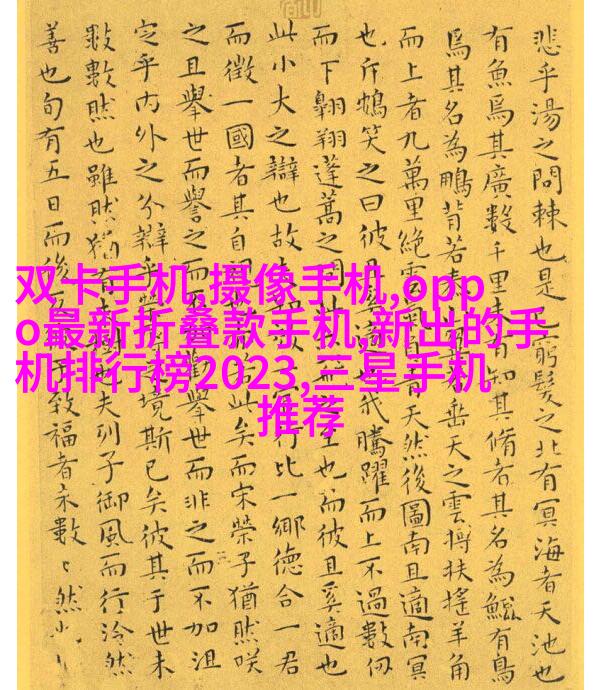 双卡手机,摄像手机,opp
o最新折叠款手机,新出的手
机排行榜2023,三星手机
推荐
悲乎湯之問棘也是窮髮之北有冥海者天池也
有魚焉其廣數千里未有知其脩者其名為鯤有鳥
焉其名為鵬背若垂天之雲摶扶搖羊角
而上者九萬里絕雲氣天然後圖南且適南冥
也斥鴳笑之曰彼我騰躍而上不過數仞
而下翱翔蓬蒿之間至也而彼且奚適也
此小大之辯也故行比一鄉德合一君
而徵一國者其自此矣而宋榮子猶然咲
之且舉世而譽之而舉世而非之而不加沮
定乎內外之分辯乎境斯已矣彼其于世未
數數然也雖然猶有夫列子御風而行泠然
善也旬有五日而後致福者未數〻然也